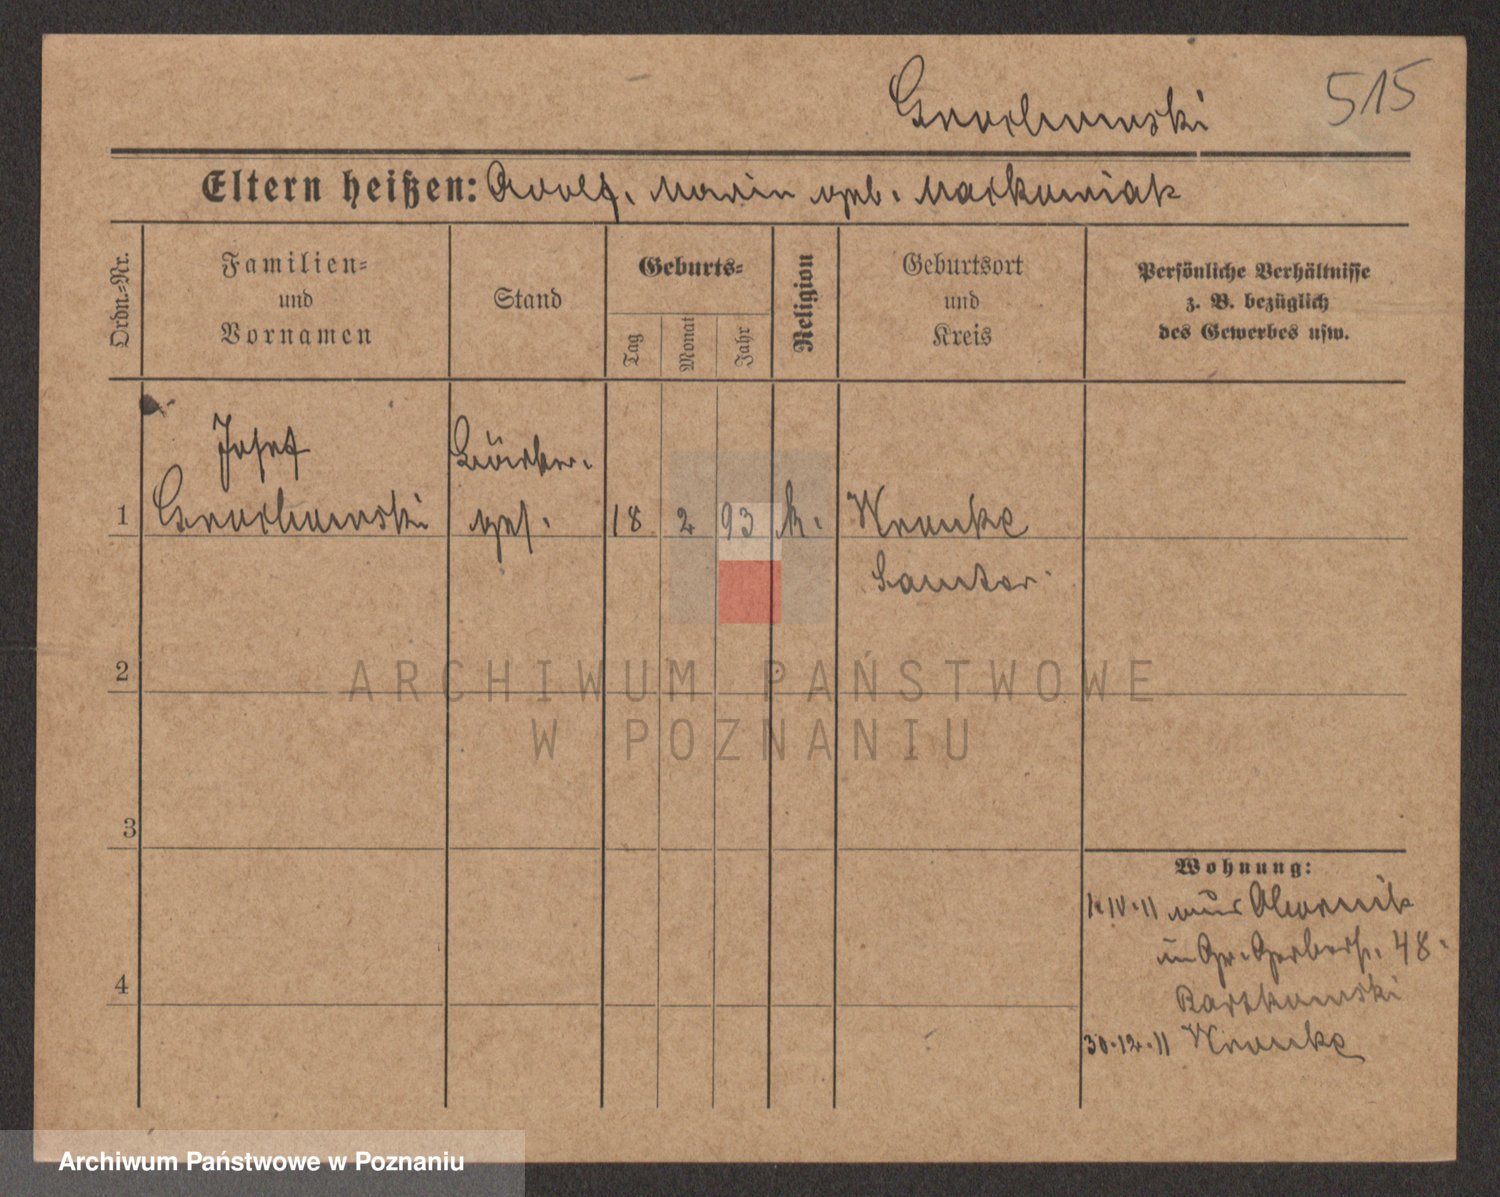 Grochowski
515
Eltern heißen: Adolf, Marie geb. Markowiak
Ordn.-Nr.
Familien-
und
Vornamen
Stand
Geburts-
Tag
Monat
Jahr
Religion
Geburtsort
und
Kreis
Persönliche Verhältnisse
z. B. bezüglich
des Gewerbes usw.
Josef
1 Grochowski
ges.
18 2 93 k. Wronke
Samter
2
ARCHIWUM PAŃSTWOWE
W POZNANIU
3
Wohnung:
1.IV.11 aus Obornik
in Gr. Gerberstr. 48.
Bartkowski
4
30.12.11 Wronke
Archiwum Państwowe w Poznaniu